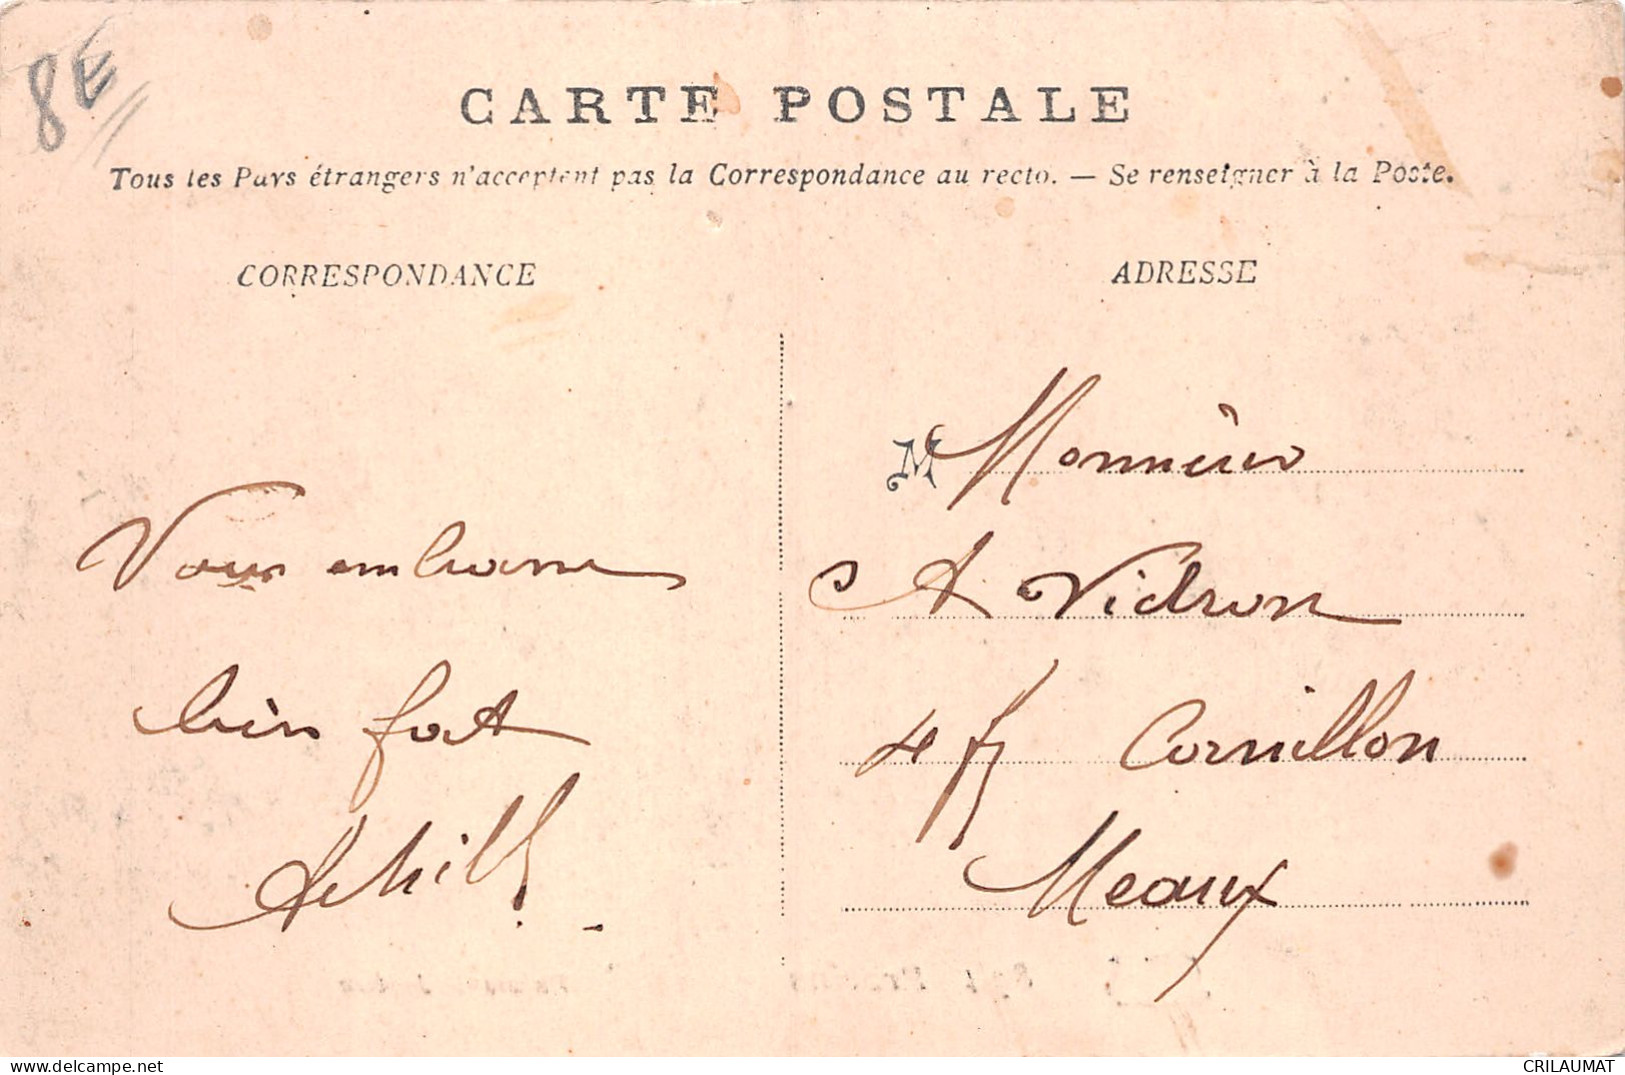 8E
CARTE POSTALE
Tous les Pays étrangers n'acceptent pas la Correspondance au recto. — Se renseigner à la Poste.
CORRESPONDANCE
ADRESSE
Vous embrasse
bien fort
Achille
M Monsieur
A Vidron
4 fg Cornillon
Meaux
CRILAUMAT